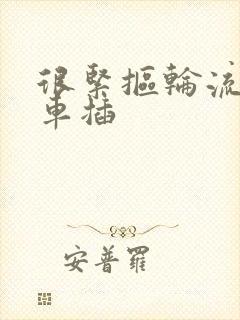 很緊摳輪流
車插
安普羅